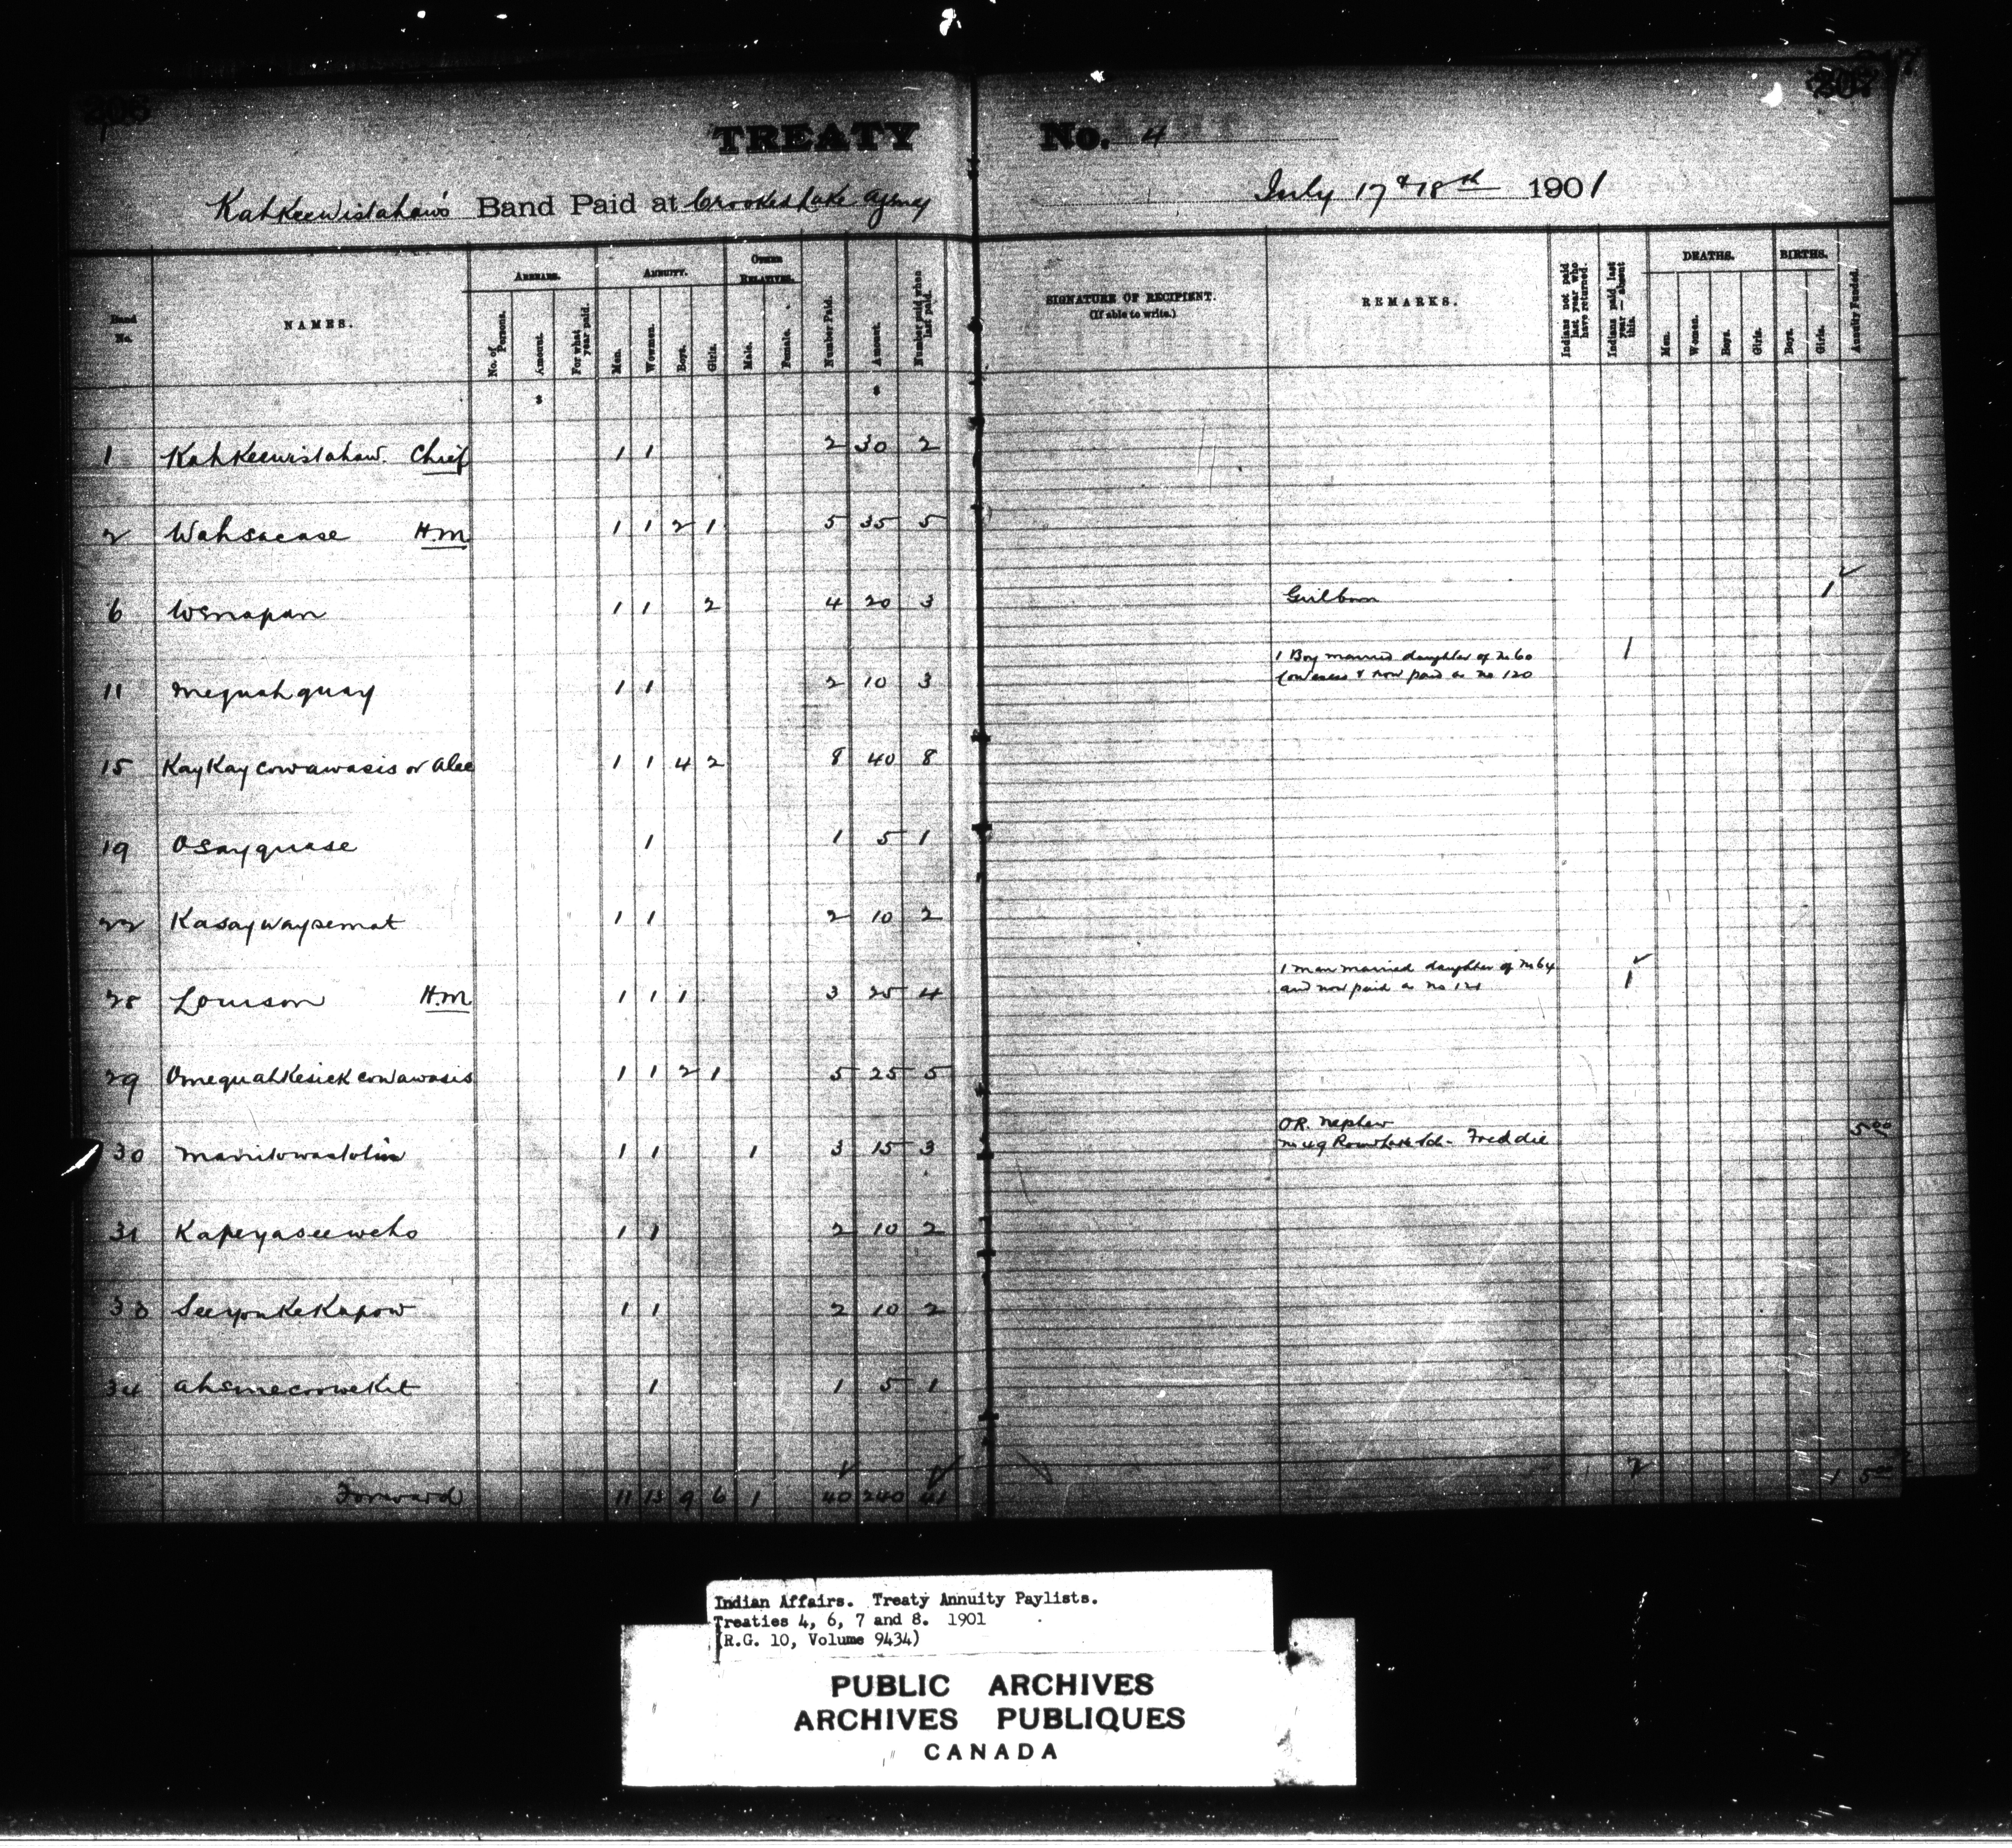 TREATY No. 4
Kahkeewistahaw's Band Paid at Crooked Lake Agency July 17 & 18th 1901
Band No.
NAMES.
ARREARS.
No. of Persons.
Amount.
For what year paid.
ANNUITY.
Men.
Women.
Boys.
Girls.
OTHER RELATIVES.
Male.
Female.
Number Paid.
Amount.
Number paid when last paid.
SIGNATURE OF RECIPIENT.
(If able to write.)
REMARKS.
Indians not paid last year who have returned.
Indians paid last year — absent this.
DEATHS.
Men.
Women.
Boys.
Girls.
BIRTHS.
Boys.
Girls.
Annuity Funded.
$ $
1 Kahkeewistahaw. Chief 1 1 2 30 2
2 Wahsacase H.M 1 1 2 1 5 35 5
6 Wenapan 1 1 2 4 20 3 Girl born 1
11 Mequahquay 1 1 2 10 3 1 Boy married daughter of No 60 1
Cowesess & now paid as No 120
15 KayKaycowawasis or Alec 1 1 4 2 8 40 8
19 Osayquase 1 1 5 1
22 Kasaywaysemat 1 1 2 10 2
28 Louison H.M 1 1 1 3 25 4 1 man married daughter of No 64 1
and now paid as No 121
29 OmequahKesickcowawasis 1 1 2 1 5 25 5
30 Manitowastotin 1 1 1 3 15 3 OR. nephew 5.00
No 49 Round Lake Sch. Freddie
31 Kapeyaseeweho 1 1 2 10 2
33 SeeyouKeKapow 1 1 2 10 2
34 AhsmecooweKit 1 1 5 1
Forward 11 13 9 6 1 40 240 41 2 1 5.00
Indian Affairs. Treaty Annuity Paylists.
Treaties 4, 6, 7 and 8. 1901
(R.G. 10, Volume 9434)
PUBLIC ARCHIVES
ARCHIVES PUBLIQUES
CANADA